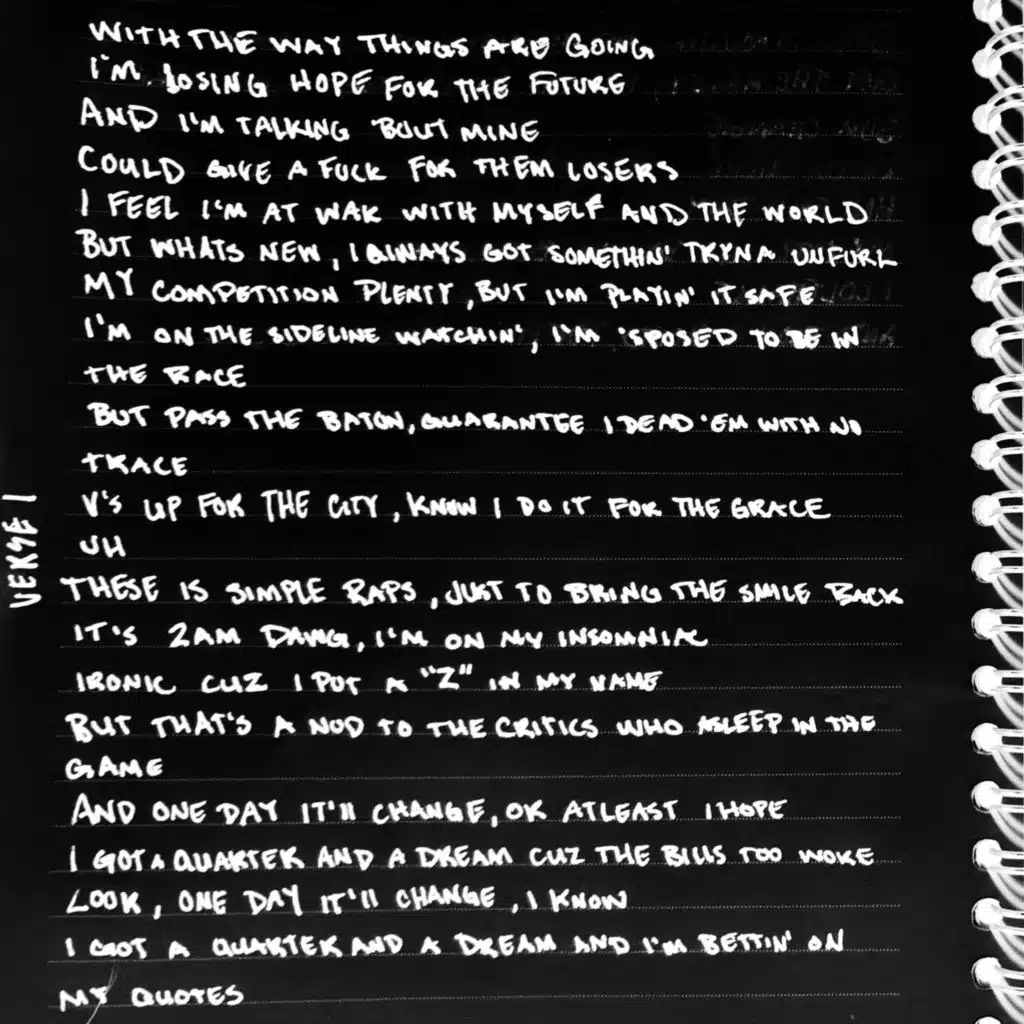 WITH THE WAY THINGS ARE GOING
I'M LOSING HOPE FOR THE FUTURE
AND I'M TALKING 'BOUT MINE
COULD GIVE A FUCK FOR THEM LOSERS
I FEEL I'M AT WAR WITH MYSELF AND THE WORLD
BUT WHATS NEW, I ALWAYS GOT SOMETHIN' TRYNA UNFURL
MY COMPETITION PLENTY, BUT I'M PLAYIN' IT SAFE
I'M ON THE SIDELINE WATCHIN', I'M 'SPOSED TO BE IN
THE RACE
BUT PASS THE BATON, GUARANTEE I DEAD 'EM WITH NO
TRACE
V'S UP FOR THE CITY, KNOW I DO IT FOR THE GRACE
UH
VERSE 1
THESE IS SIMPLE RAPS, JUST TO BRING THE SMILE BACK
IT'S 2AM DAWG, I'M ON MY INSOMNIAC
IRONIC CUZ I PUT A "Z" IN MY NAME
BUT THAT'S A NOD TO THE CRITICS WHO ASLEEP IN THE
GAME
AND ONE DAY IT'll CHANGE, OR ATLEAST I HOPE
I GOT A QUARTER AND A DREAM CUZ THE BILLS TOO WOKE
LOOK, ONE DAY IT'll CHANGE, I KNOW
I GOT A QUARTER AND A DREAM AND I'M BETTIN' ON
MY QUOTES